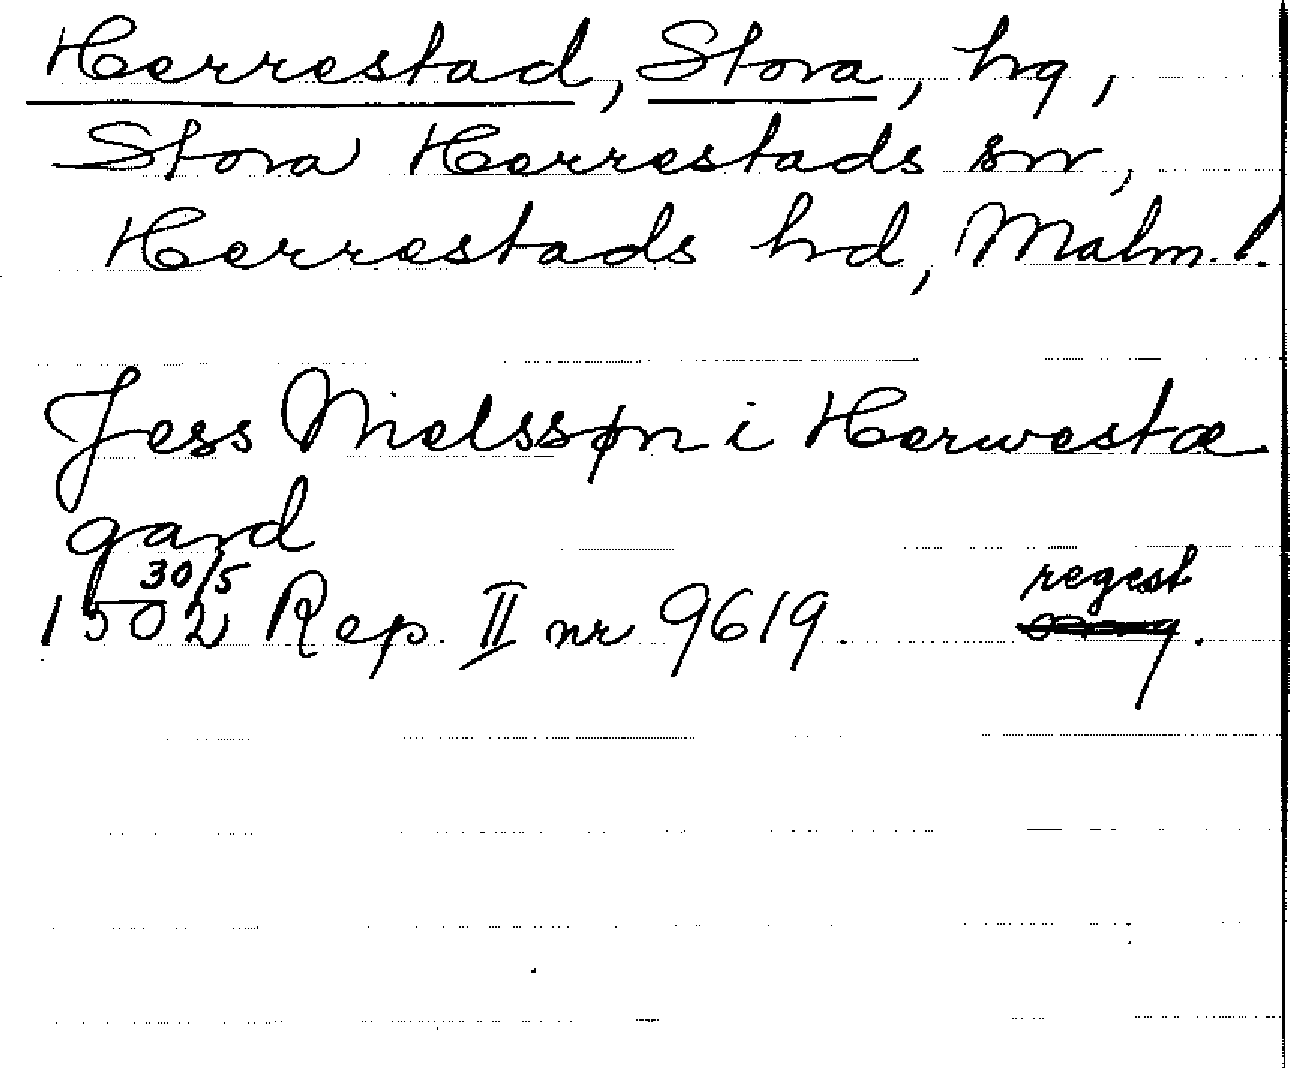 Herrestad, Stora, hg,
Stora Herrestads sn,
Herrestads hd, Malm. l.
Jess Nielssøn i Herwestæ
gard
30/5
1502 Rep. II nr 9619. regest